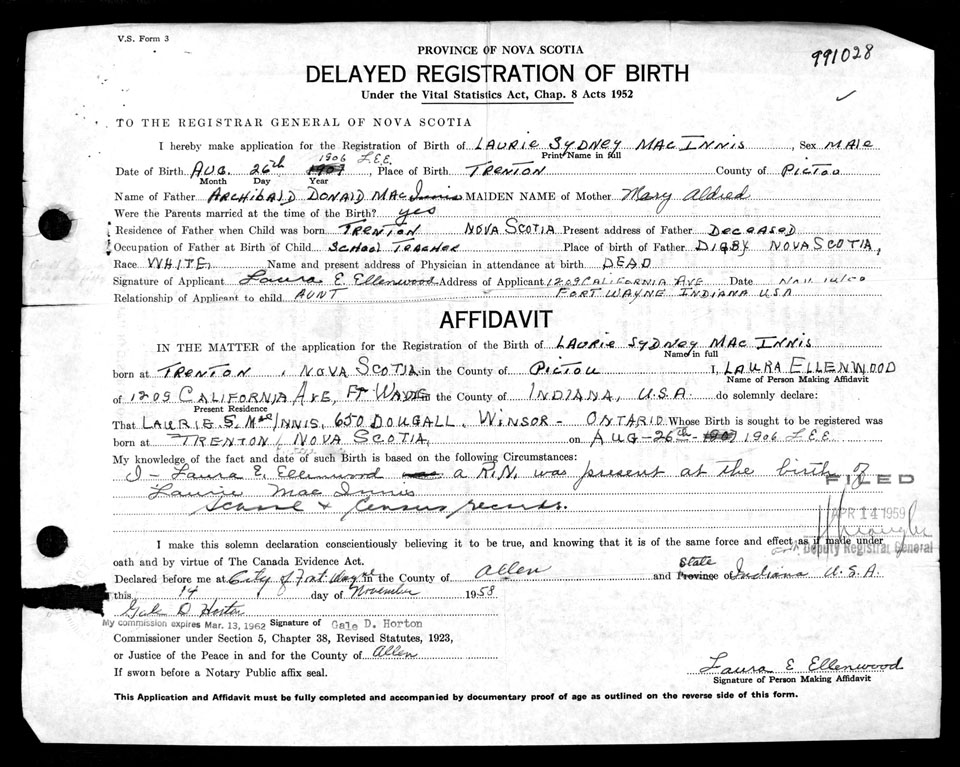 V.S. Form 3
PROVINCE OF NOVA SCOTIA
991028
DELAYED REGISTRATION OF BIRTH
Under the Vital Statistics Act, Chap. 8 Acts 1952
TO THE REGISTRAR GENERAL OF NOVA SCOTIA
I hereby make application for the Registration of Birth of LAURIE SYDNEY MAC INNIS, Sex MALE
Print Name in full
1906 L.E.E.
Date of Birth AUG. 26th 1907, Place of Birth TRENTON County of PICTOU
Month Day Year
Name of Father ARCHIBALD DONALD MAC Innis MAIDEN NAME of Mother Mary Aldred
Were the Parents married at the time of the Birth? yes
Residence of Father when Child was born TRENTON NOVA SCOTIA Present address of Father DECEASED
Occupation of Father at Birth of Child SCHOOL TEACHER Place of birth of Father DIGBY NOVA SCOTIA,
Race WHITE, Name and present address of Physician in attendance at birth DEAD
Signature of Applicant Laura E. Ellenwood Address of Applicant 1209 CALIFORNIA AVE Date Nov.
Relationship of Applicant to child AUNT FORT WAYNE INDIANA USA
AFFIDAVIT
IN THE MATTER of the application for the Registration of the Birth of LAURIE SYDNEY MAC INNIS
Name in full
born at TRENTON, NOVA SCOTIA in the County of PICTOU I, LAURA ELLENWOOD
Name of Person Making Affidavit
of 1209 CALIFORNIA AVE, FT WAYNE in the County of INDIANA, U.S.A. do solemnly declare:
Present Residence
That LAURIE S. MacINNIS, 650 DOUGALL, WINSOR - ONTARIO Whose Birth is sought to be registered was
born at TRENTON, NOVA SCOTIA, on AUG-26th-1907 1906 L.E.E.
My knowledge of the fact and date of such Birth is based on the following Circumstances:
I - Laura E. Ellenwood a R.N. was present at the birth of
Laurie Mac Innis
School & Census records.
FILED
APR 14 1959
Deputy Registrar General
I make this solemn declaration conscientiously believing it to be true, and knowing that it is of the same force and effect as if made under
oath and by virtue of The Canada Evidence Act.
State
Declared before me at City of Fort Wayne in the County of Allen and Province of Indiana U.S.A.
this 14 day of November 1958
Gale D Horton
My commission expires Mar. 13, 1962 Signature of Gale D. Horton
Commissioner under Section 5, Chapter 38, Revised Statutes, 1923,
or Justice of the Peace in and for the County of Allen
If sworn before a Notary Public affix seal.
Laura E Ellenwood
Signature of Person Making Affidavit
This Application and Affidavit must be fully completed and accompanied by documentary proof of age as outlined on the reverse side of this form.